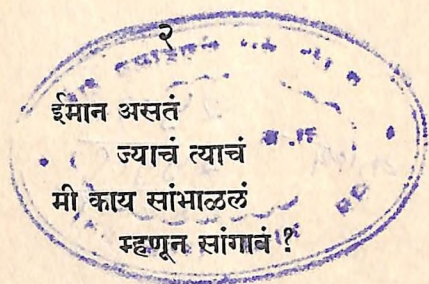 २
ईमान असतं
ज्याचं त्याचं
मी काय सांभाळलं
म्हणून सांगावं ?